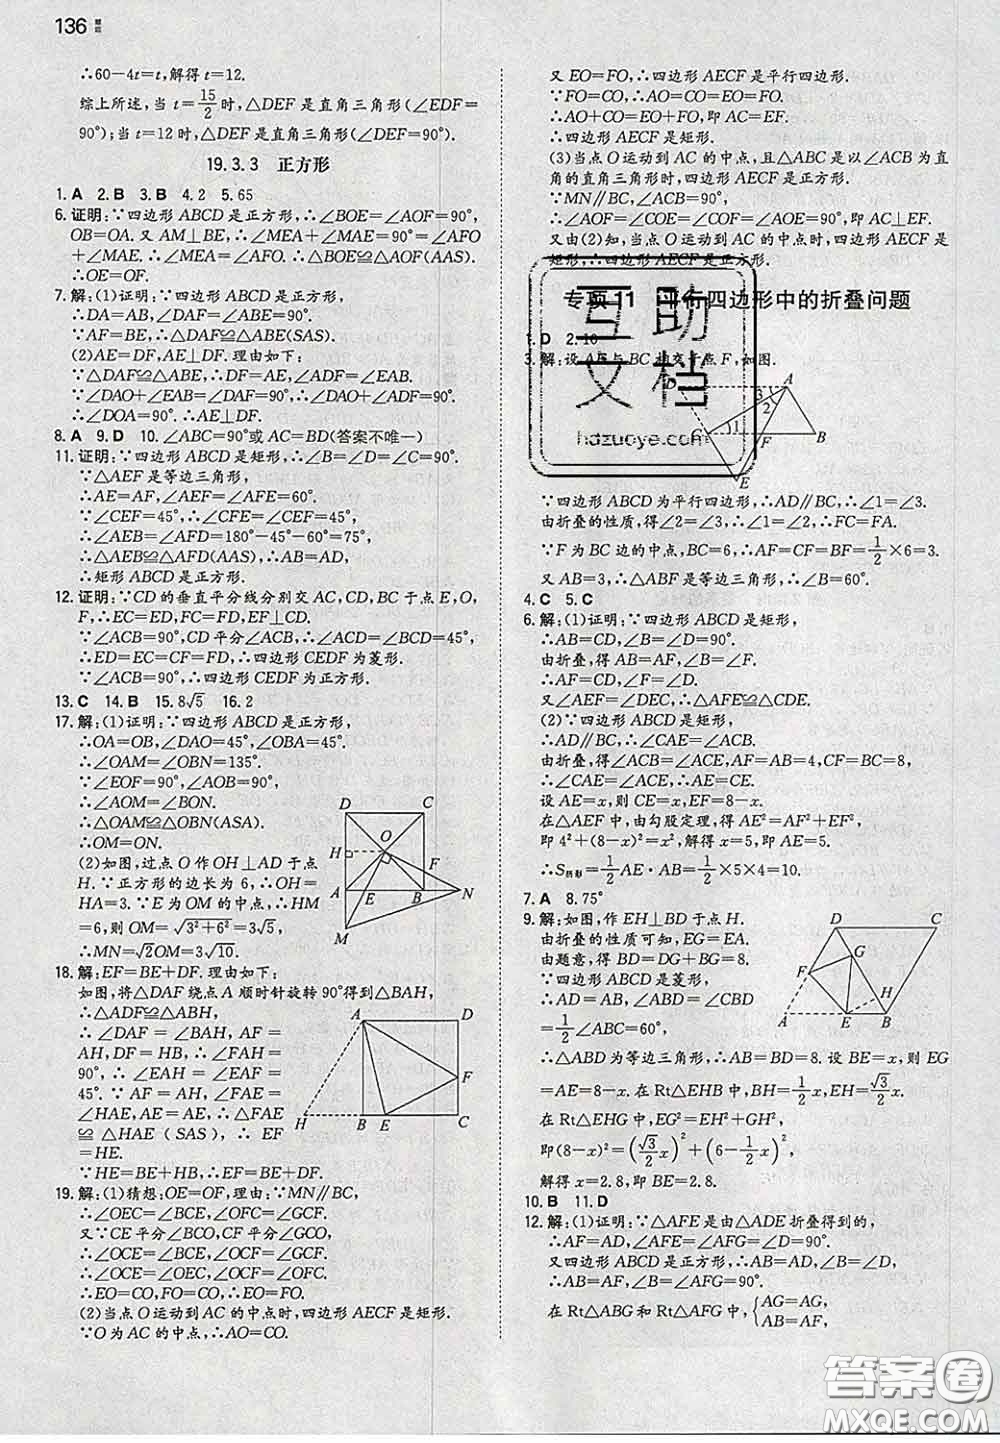 136
∴60-4t=t,解得 t=12.
综上所述,当 t=15/2时,△DEF是直角三角形(∠EDF=
90°);当 t=12 时,△DEF是直角三角形(∠DEF=90°).
19.3.3 正方形
1.A 2.B 3.B 4.2 5.65
6.证明:∵四边形 ABCD 是正方形,∴∠BOE=∠AOF=90°,
OB=OA.又 AM⊥BE,∴∠MEA+∠MAE=90°=∠AFO
+∠MAE.∴∠MEA=∠AFO.∴△BOE≌△AOF(AAS).
∴OE=OF.
7.解:(1)证明:∵四边形 ABCD 是正方形,
∴DA=AB,∠DAF=∠ABE=90°.
∵AF=BE,∴△DAF≌△ABE(SAS).
(2)AE=DF,AE⊥DF.理由如下:
∵△DAF≌△ABE,∴DF=AE,∠ADF=∠EAB.
∵∠DAO+∠EAB=∠DAF=90°,∴∠DAO+∠ADF=90°.
∴∠DOA=90°.∴AE⊥DF.
8.A 9.D 10.∠ABC=90°或 AC=BD(答案不唯一)
11.证明:∵四边形 ABCD 是矩形,∴∠B=∠D=∠C=90°.
∵△AEF是等边三角形,
∴AE=AF,∠AEF=∠AFE=60°.
∵∠CEF=45°,∴∠CFE=∠CEF=45°,
∴∠AEB=∠AFD=180°-45°-60°=75°,
∴△AEB≌△AFD(AAS),∴AB=AD,
∴矩形 ABCD 是正方形.
12.证明:∵CD 的垂直平分线分别交 AC,CD,BC 于点 E,O,
F,∴EC=ED,FC=FD,EF⊥CD.
∵∠ACB=90°,CD平分∠ACB,∴∠ACD=∠BCD=45°,
∴ED=EC=CF=FD,∴四边形 CEDF 为菱形.
∵∠ACB=90°,∴四边形 CEDF 为正方形.
13.C 14.B 15.8√5 16.2
17.解:(1)证明:∵四边形 ABCD 是正方形,
∴OA=OB,∠DAO=45°,∠OBA=45°.
∴∠OAM=∠OBN=135°.
∵∠EOF=90°,∠AOB=90°,
∴∠AOM=∠BON.
∴△OAM≌△OBN(ASA).
∴OM=ON.
(2)如图,过点 O 作 OH⊥AD 于点
H.∵正方形的边长为 6,∴OH=
HA=3.∵E 为 OM 的中点,∴HM
=6,则 OM=√(3²+6²)=3√5,
∴MN=√2OM=3√10.
D C O H F A E B N M
18.解:EF=BE+DF.理由如下:
如图,将△DAF绕点 A 顺时针旋转90°得到△BAH,
∴△ADF≌△ABH,
∴∠DAF=∠BAH,AF=
AH,DF=HB,∴∠FAH=
90°,∴∠EAH=∠EAF=
45°.∵AF=AH,∠FAE=
∠HAE,AE=AE,∴△FAE
≌△HAE(SAS),∴EF
=HE.
∵HE=BE+HB,∴EF=BE+DF.
A D F H B E C
19.解:(1)猜想:OE=OF,理由:∵MN∥BC,
∴∠OEC=∠BCE,∠OFC=∠GCF.
又∵CE平分∠BCO,CF平分∠GCO,
∴∠OCE=∠BCE,∠OCF=∠GCF.
∴∠OCE=∠OEC,∠OCF=∠OFC.
∴EO=CO,FO=CO,∴EO=FO.
(2)当点 O 运动到 AC 的中点时,四边形 AECF 是矩形.
∵O 为 AC 的中点,∴AO=CO.
又 EO=FO,∴四边形 AECF 是平行四边形.
∵FO=CO,∴AO=CO=EO=FO.
∴AO+CO=EO+FO,即 AC=EF.
∴四边形 AECF 是矩形.
(3)当点 O 运动到 AC 的中点,且△ABC 是以∠ACB 为直
角的直角三角形时,四边形 AECF 是正方形.
∵MN∥BC,∠ACB=90°,
∴∠AOF=∠COE=∠COF=∠AOE=90°,即 AC⊥EF.
又由(2)知,当点 O 运动到 AC 的中点时,四边形 AECF 是
矩形,∴四边形 AECF 是正方形.
专项 11 平行四边形中的折叠问题
1.D 2.10
3.解:设 AE与 BC 边交于点 F,如图.
D A 3 2 C 1 F B E
互助
文档
hdzuoye.com
∵四边形 ABCD 为平行四边形,∴AD∥BC,∴∠1=∠3.
由折叠的性质,得∠2=∠3,∴∠1=∠2,∴FC=FA.
∵F为 BC 边的中点,BC=6,∴AF=CF=BF=1/2×6=3.
又 AB=3,∴△ABF是等边三角形,∴∠B=60°.
4.C 5.C
6.解:(1)证明:∵四边形 ABCD 是矩形,
∴AB=CD,∠B=∠D=90°.
由折叠,得 AB=AF,∠B=∠F.
∴AF=CD,∠F=∠D.
又∠AEF=∠DEC,∴△AFE≌△CDE.
(2)∵四边形 ABCD 是矩形,
∴AD∥BC,∴∠CAE=∠ACB.
由折叠,得∠ACB=∠ACE,AF=AB=4,CF=BC=8,
∴∠CAE=∠ACE,∴AE=CE.
设 AE=x,则 CE=x,EF=8-x.
在△AEF中,由勾股定理,得 AE²=AF²+EF²,
即 4²+(8-x)²=x²,解得 x=5,即 AE=5.
∴S阴影=1/2AE·AB=1/2×5×4=10.
7.A 8.75°
9.解:如图,作 EH⊥BD 于点 H.
由折叠的性质可知,EG=EA.
由题意,得 BD=DG+BG=8.
∵四边形 ABCD 是菱形,
∴AD=AB,∠ABD=∠CBD
=1/2∠ABC=60°,
D C G F H A E B
∴△ABD为等边三角形,∴AB=BD=8.设 BE=x,则 EG
=AE=8-x.在 Rt△EHB 中,BH=1/2x,EH=√3/2x.
在 Rt△EHG 中,EG²=EH²+GH²,
即(8-x)²=(√3/2x)²+(6-1/2x)²,
解得 x=2.8,即 BE=2.8.
10.B 11.D
12.解:(1)证明:∵△AFE是由△ADE折叠得到的,
∴AF=AD,∠AFE=∠AFG=∠D=90°.
又四边形 ABCD 是正方形,
∴AB=AF,∠B=∠AFG=90°.
在 Rt△ABG 和 Rt△AFG 中,{AG=AG,
AB=AF,
答案圈
MXQE.COM